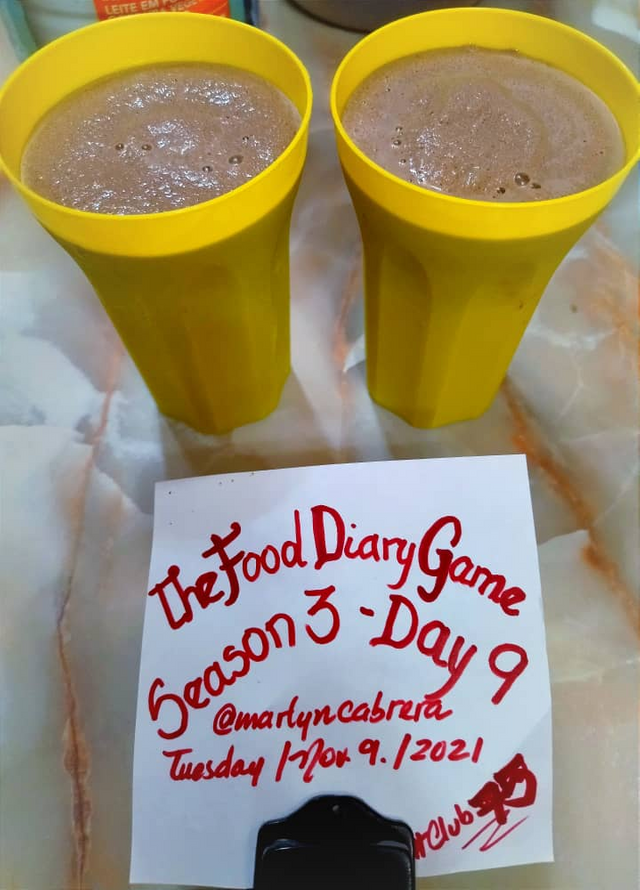 LEITE EM PÓ
The Food Diary Game
Season 3 - Day 9
@marlyncabrera
Tuesday / Nov. 9. / 2021
#Club